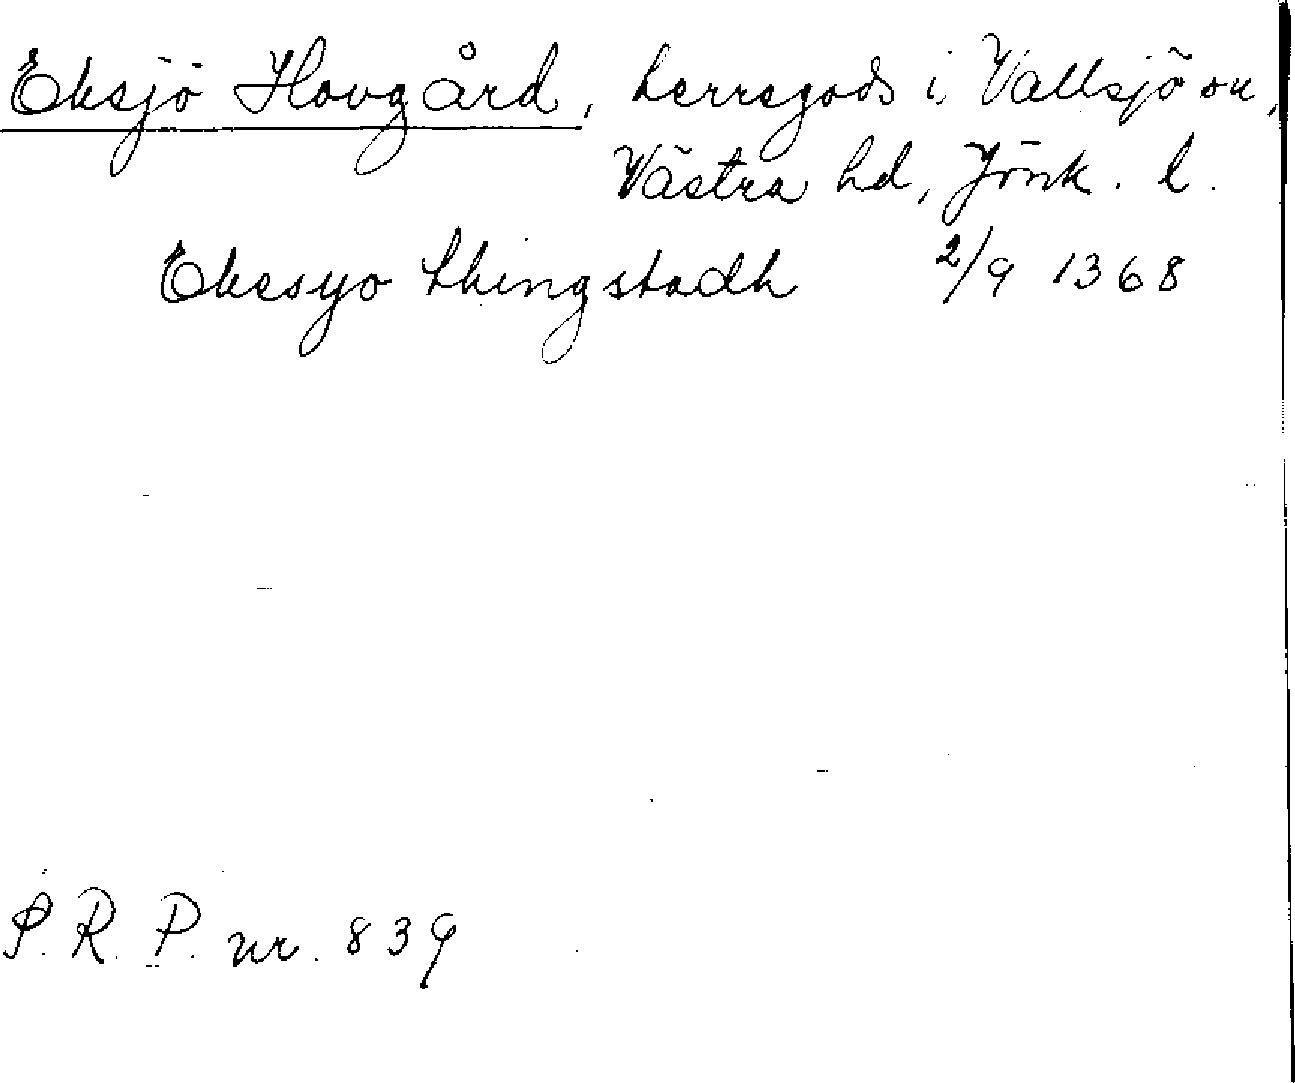 Eksjö Hovgård, herregods i Vallsjö sn,
Västra hd, Jönk. l.
Ekesyo thingstadh 2/9 1368
S. R. P. nr. 839